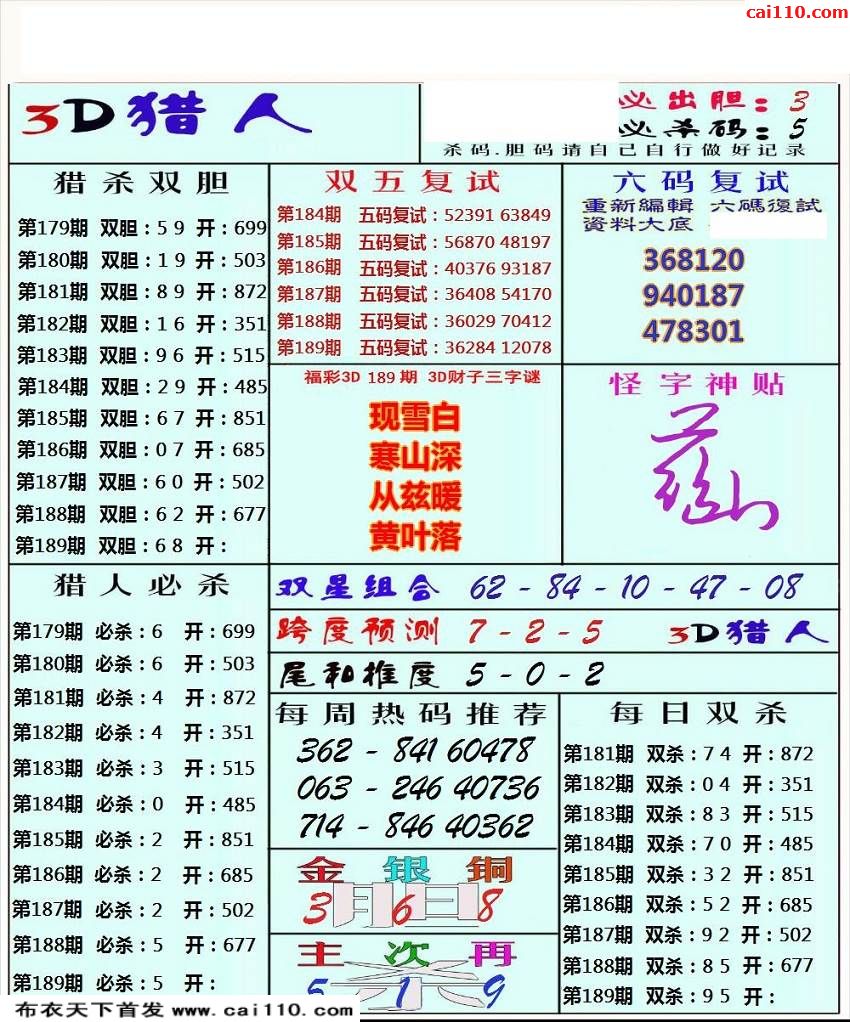 cai110.com
3D猎人
必出胆：3
必杀码：5
杀码.胆码请自己自行做好记录
猎杀双胆
第179期 双胆：5 9 开：699
第180期 双胆：1 9 开：503
第181期 双胆：8 9 开：872
第182期 双胆：1 6 开：351
第183期 双胆：9 6 开：515
第184期 双胆：2 9 开：485
第185期 双胆：6 7 开：851
第186期 双胆：0 7 开：685
第187期 双胆：6 0 开：502
第188期 双胆：6 2 开：677
第189期 双胆：6 8 开：
双五复试
第184期 五码复试：52391 63849
第185期 五码复试：56870 48197
第186期 五码复试：40376 93187
第187期 五码复试：36408 54170
第188期 五码复试：36029 70412
第189期 五码复试：36284 12078
六码复试
重新編輯 六碼復試
資料大底
368120
940187
478301
福彩3D 189期 3D财子三字谜
现雪白
寒山深
从兹暖
黄叶落
怪字神贴
猎人必杀
第179期 必杀：6 开：699
第180期 必杀：6 开：503
第181期 必杀：4 开：872
第182期 必杀：4 开：351
第183期 必杀：3 开：515
第184期 必杀：0 开：485
第185期 必杀：2 开：851
第186期 必杀：2 开：685
第187期 必杀：2 开：502
第188期 必杀：5 开：677
第189期 必杀：5 开：
双星组合 62-84-10-47-08
跨度预测 7-2-5 3D猎人
尾和推度 5-0-2
每周热码推荐
362-841 60478
063-246 40736
714-846 40362
金银铜
月日
3 6 8
主次再
杀
5 1 9
每日双杀
第181期 双杀：7 4 开：872
第182期 双杀：0 4 开：351
第183期 双杀：8 3 开：515
第184期 双杀：7 0 开：485
第185期 双杀：3 2 开：851
第186期 双杀：5 2 开：685
第187期 双杀：9 2 开：502
第188期 双杀：8 5 开：677
第189期 双杀：9 5 开：
布衣天下首发 www.cai110.com